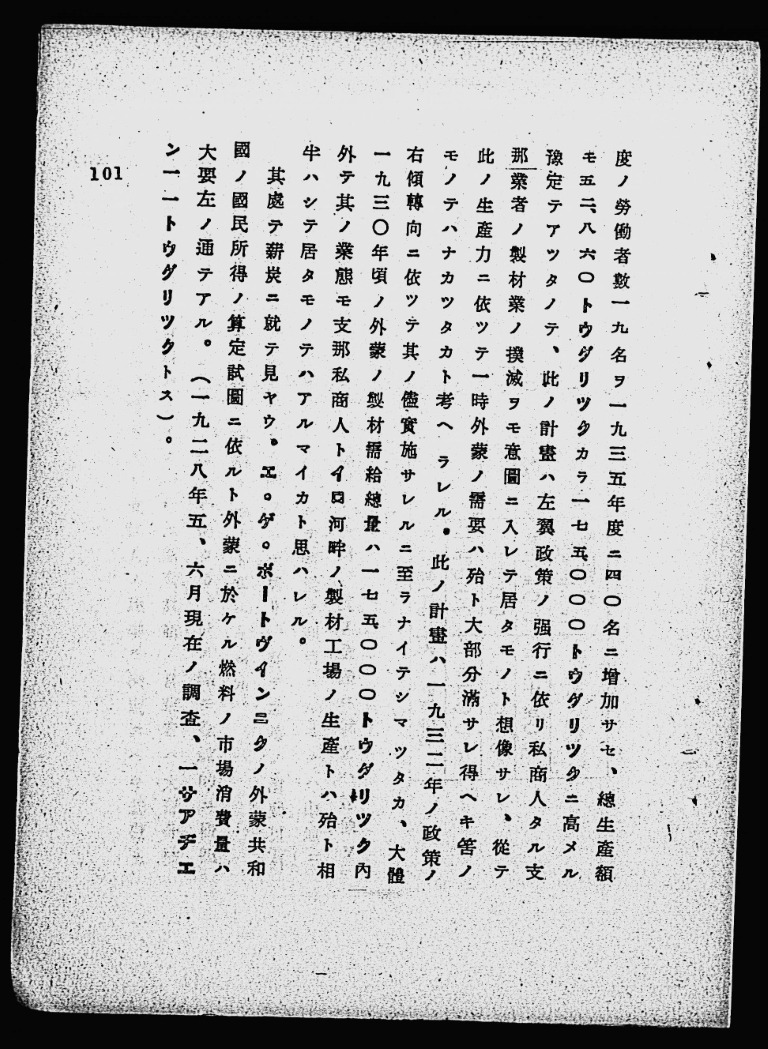 度ノ勞働者數一九名ヲ一九三五年度ニ四〇名ニ增加サセ、總生產額
モ五二、八六〇トウグリツクカラ一七五、〇〇〇トウグリツクニ高メル
豫定テアツタノテ、此ノ計畫ハ左翼政策ノ强行ニ依リ私商人タル支
那業者ノ製材業ノ撲滅ヲモ意圖ニ入レテ居タモノト想像サレ、從テ
此ノ生產力ニ依ツテ一時外蒙ノ需要ハ殆ト大部分滿サレ得ヘキ筈ノ
モノテハナカツタカト考ヘラレル。此ノ計畫ハ一九三二年ノ政策ノ
右傾轉向ニ依ツテ其ノ儘實施サレルニ至ラナイテシマツタカ、大體
一九三〇年頃ノ外蒙ノ製材需給總量ハ一七五、〇〇〇トウグリツク內
外テ其ノ業態モ支那私商人トイロ河畔ノ製材工場ノ生產トハ殆ト相
半ハシテ居タモノテハアルマイカト思ハレル。
其處テ薪炭ニ就テ見ヤウ。エ。ゲ。ポートヴインニクノ外蒙共和
國ノ國民所得ノ算定試圖ニ依ルト外蒙ニ於ケル燃料ノ市場消費量ハ
大要左ノ通テアル。(一九二八年五、六月現在ノ調査、一サアデエ
ン一一トウグリツクトス)。
101